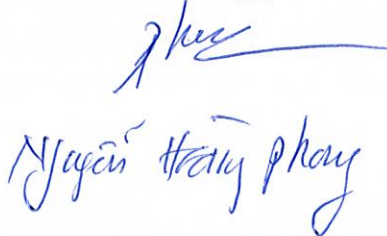 Nguyễn Hoàng Phong